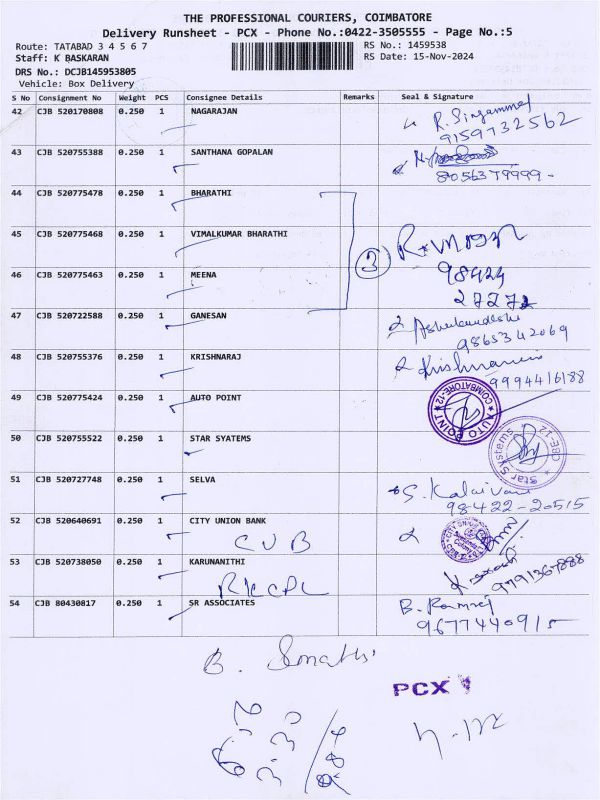 THE PROFESSIONAL COURIERS, COIMBATORE
Delivery Runsheet - PCX - Phone No.:0422-3505555 - Page No.:5
Route: TATABAD 3 4 5 6 7 RS No.: 1459538
Staff: K BASKARAN RS Date: 15-Nov-2024
DRS No.: DCJB145953805
Vehicle: Box Delivery
S No Consignment No Weight PCS Consignee Details Remarks Seal & Signature
42 CJB 520170808 0.250 1 NAGARAJAN R. Singammal
9159732562
43 CJB 520755388 0.250 1 SANTHANA GOPALAN
8056379999-
44 CJB 520775478 0.250 1 BHARATHI
45 CJB 520775468 0.250 1 VIMALKUMAR BHARATHI
3
46 CJB 520775463 0.250 1 MEENA 98424
27272
47 CJB 520722588 0.250 1 GANESAN
9865342069
48 CJB 520755376 0.250 1 KRISHNARAJ
9994416188
49 CJB 520775424 0.250 1 AUTO POINT AUTO POINT COIMBATORE-12
50 CJB 520755522 0.250 1 STAR SYATEMS Star Systems CBE-12
51 CJB 520727748 0.250 1 SELVA S. Kalaivani
98422-20515
52 CJB 520640691 0.250 1 CITY UNION BANK
CUB
53 CJB 520738050 0.250 1 KARUNANITHI 9791367888
RKCPL
54 CJB 80430817 0.250 1 SR ASSOCIATES B. Ramraj
9677440915
B. Smathi
PCX